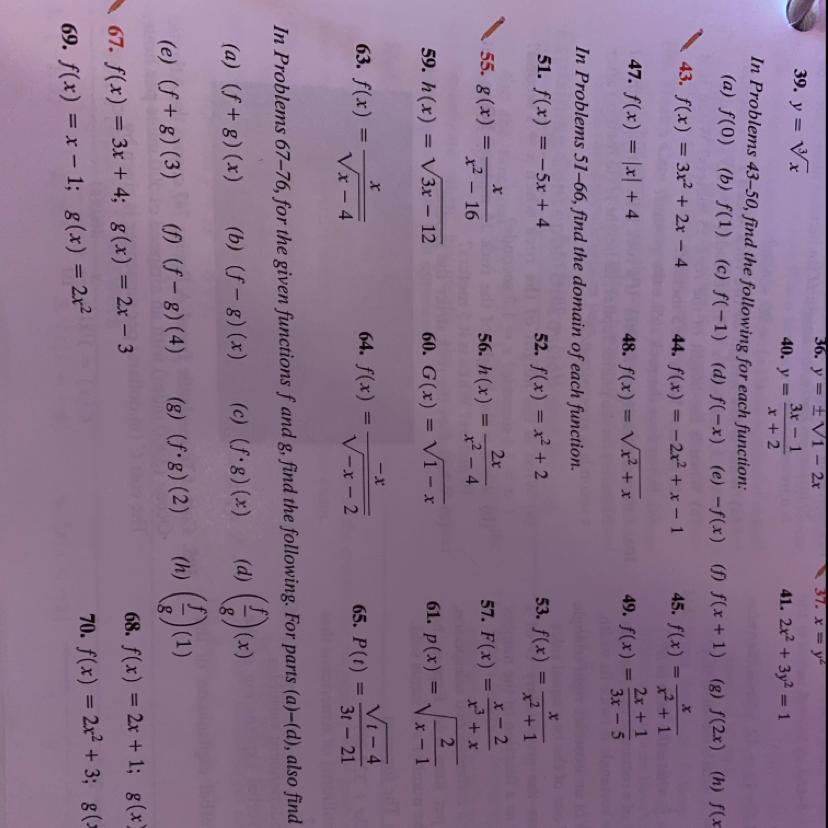 36. y = ±√1 − 2x
37. x = y²
39. y = ∛x
40. y = (3x − 1)/(x + 2)
41. 2x² + 3y² = 1
In Problems 43–50, find the following for each function:
(a) f(0) (b) f(1) (c) f(−1) (d) f(−x) (e) −f(x) (f) f(x + 1) (g) f(2x) (h) f(x
43. f(x) = 3x² + 2x − 4
44. f(x) = −2x² + x − 1
45. f(x) = x/(x² + 1)
47. f(x) = |x| + 4
48. f(x) = √(x² + x)
49. f(x) = (2x + 1)/(3x − 5)
In Problems 51–66, find the domain of each function.
51. f(x) = −5x + 4
52. f(x) = x² + 2
53. f(x) = x/(x² + 1)
55. g(x) = x/(x² − 16)
56. h(x) = 2x/(x² − 4)
57. F(x) = (x − 2)/(x³ + x)
59. h(x) = √(3x − 12)
60. G(x) = √(1 − x)
61. p(x) = √(2/(x − 1))
63. f(x) = x/√(x − 4)
64. f(x) = −x/√(−x − 2)
65. P(t) = √(t − 4)/(3t − 21)
In Problems 67–76, for the given functions f and g, find the following. For parts (a)–(d), also find
(a) (f + g)(x) (b) (f − g)(x) (c) (f · g)(x) (d) (f/g)(x)
(e) (f + g)(3) (f) (f − g)(4) (g) (f · g)(2) (h) (f/g)(1)
67. f(x) = 3x + 4; g(x) = 2x − 3
68. f(x) = 2x + 1; g(x)
69. f(x) = x − 1; g(x) = 2x²
70. f(x) = 2x² + 3; g(